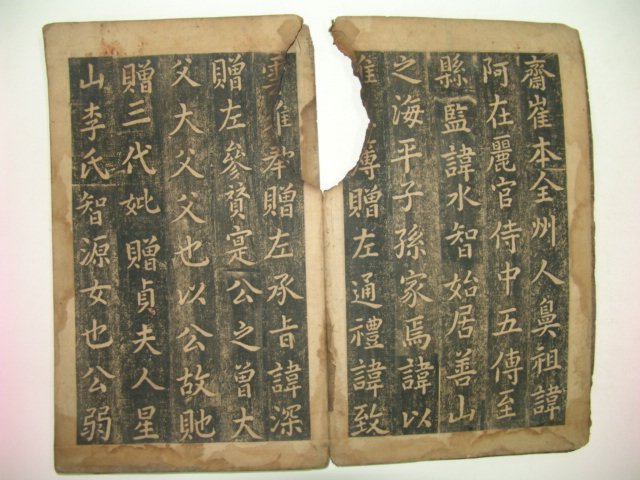 齋崔本全州人鼻祖諱
阿在麗官侍中五傳至
縣監諱水智始居善山
之海平子孫家焉諱以
惟 贈左通禮諱致
雲 贈左承旨諱深
贈左參贊寔公之曾大
父大父父也以公故貤
贈三代妣贈貞夫人星
山李氏智源女也公弱